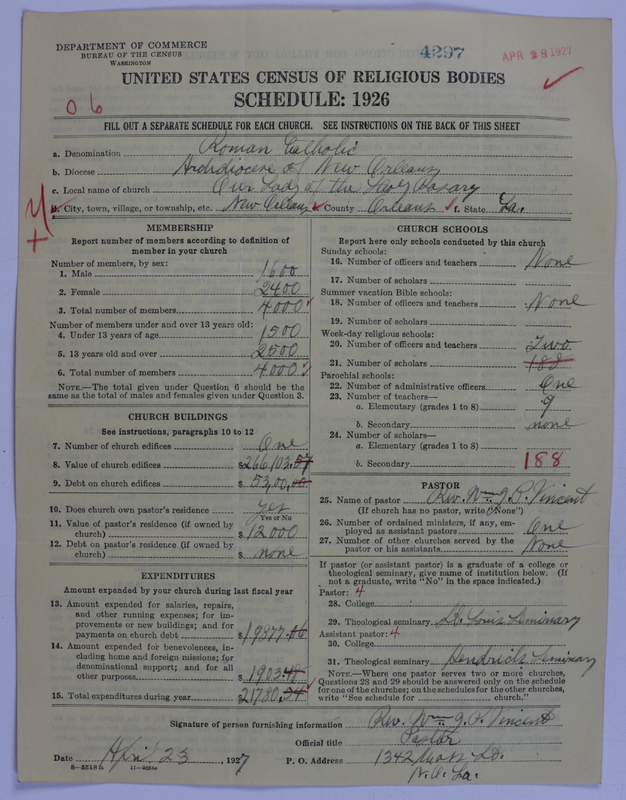 DEPARTMENT OF COMMERCE
BUREAU OF THE CENSUS
WASHINGTON
4297
APR 28 1927
UNITED STATES CENSUS OF RELIGIOUS BODIES
SCHEDULE: 1926
06
FILL OUT A SEPARATE SCHEDULE FOR EACH CHURCH. SEE INSTRUCTIONS ON THE BACK OF THIS SHEET
a. Denomination Roman Catholic
b. Diocese Archdiocese of New Orleans
c. Local name of church Our Lady of the Holy Rosary
City, town, village, or township, etc. New Orleans County Orleans f. State La.
MEMBERSHIP
Report number of members according to definition of
member in your church
Number of members, by sex:
1. Male 1600
2. Female 2400
3. Total number of members 4000
Number of members under and over 13 years old:
4. Under 13 years of age 1500
5. 13 years old and over 2500
6. Total number of members 4000
NOTE.—The total given under Question 6 should be the
same as the total of males and females given under Question 3.
CHURCH BUILDINGS
See instructions, paragraphs 10 to 12
7. Number of church edifices One
8. Value of church edifices $266,103.57
9. Debt on church edifices $53,00,00
10. Does church own pastor's residence Yes
Yes or No
11. Value of pastor's residence (if owned by
church) $12000
12. Debt on pastor's residence (if owned by
church) $ none
EXPENDITURES
Amount expended by your church during last fiscal year
13. Amount expended for salaries, repairs,
and other running expenses; for im-
provements or new buildings; and for
payments on church debt $19877.
14. Amount expended for benevolences, in-
cluding home and foreign missions; for
denominational support; and for all
other purposes $1903.
15. Total expenditures during year $21780.54
CHURCH SCHOOLS
Report here only schools conducted by this church
Sunday schools:
16. Number of officers and teachers None
17. Number of scholars
Summer vacation Bible schools:
18. Number of officers and teachers None
19. Number of scholars
Week-day religious schools:
20. Number of officers and teachers Two
21. Number of scholars 188
Parochial schools:
22. Number of administrative officers One
23. Number of teachers—
a. Elementary (grades 1 to 8) 9
b. Secondary none
24. Number of scholars—
a. Elementary (grades 1 to 8)
b. Secondary 188
PASTOR
25. Name of pastor Rev. Wm J. P. Vincent
(If church has no pastor, write "None")
26. Number of ordained ministers, if any, em-
ployed as assistant pastors One
27. Number of other churches served by the
pastor or his assistants None
If pastor (or assistant pastor) is a graduate of a college or
theological seminary, give name of institution below. (If
not a graduate, write "No" in the space indicated.)
Pastor: 4
28. College
29. Theological seminary St. Louis Seminary
Assistant pastor: 4
30. College
31. Theological seminary Kendrick Seminary
NOTE.—Where one pastor serves two or more churches,
Questions 28 and 29 should be answered only on the schedule
for one of the churches; on the schedules for the other churches,
write "See schedule for church."
Signature of person furnishing information Rev. Wm J. P. Vincent
Official title Pastor
Date April 23, 1927 P. O. Address 1342 Moss St.
N.O. La.